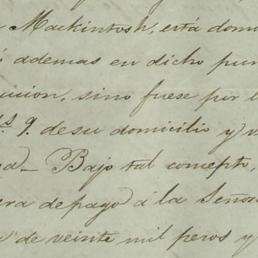 Mackintosh, está domi
ademas en dicho pun
uicion, sino fuese por l
9. de su domicilio y v
Bajo tal concepto,
era de pago á la Señor
de veinte mil pesos y